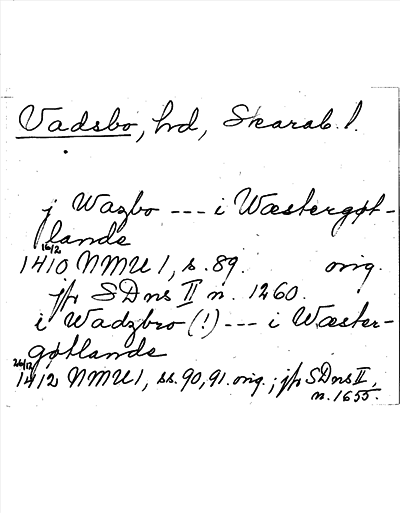 Vadsbo, hd, Skarab. l.
j Wazbo --- i Wæstergøt-
lande
16/2
1410 NMU 1, s. 89. orig.
jfr SDns II n. 1260.
i Wadzbro (!) --- i Wæster-
gøtlande
26/12
1412 NMU 1, ss. 90, 91. orig.; jfr SDns II,
n. 1655.